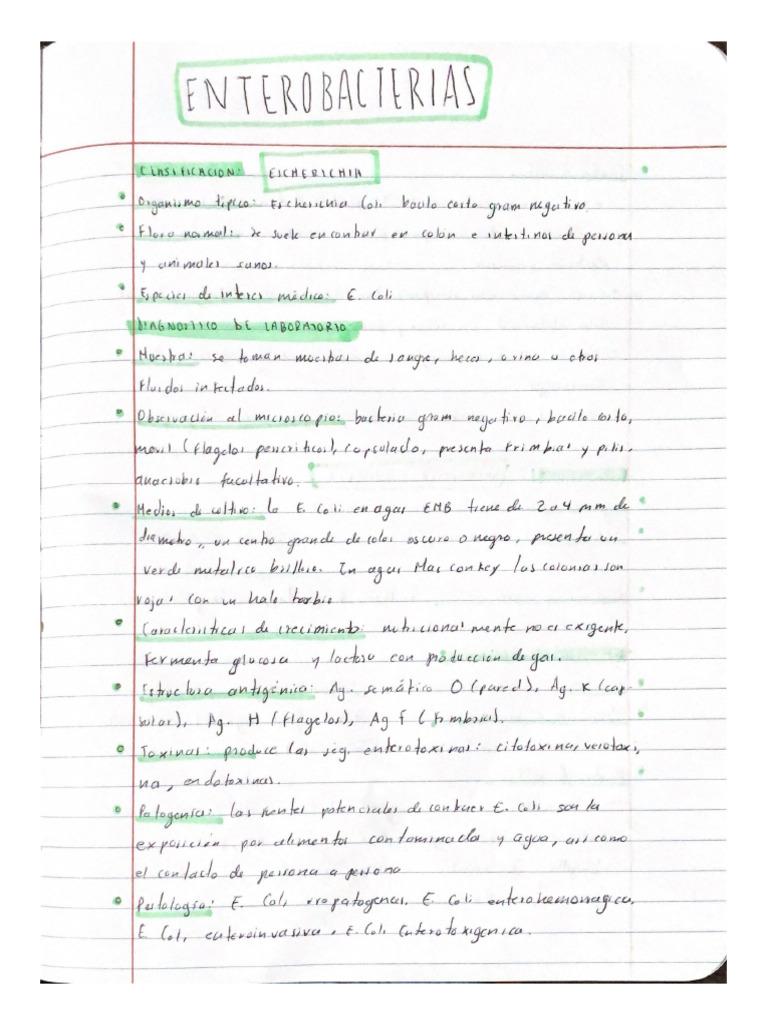 ENTEROBACTERIAS
CLASIFICACION: ESCHERICHIA
Organismo típico: Escherichia Coli bacilo corto gram negativo.
Flora normal: se suele encontrar en colon e intestinos de persona
y animales sanos.
Especies de interes médico: E. Coli
DIAGNOSTICO DE LABORATORIO
Muestra: se toman muestras de sangre, heces, orina u otros
Fluidos infectados.
Observación al microscopio: bacteria gram negativo, bacilo corto,
movil (flagelos peritricos), capsulado, presenta Frimbias y pilis,
anaerobio facultativo.
Medios de cultivo: la E. Coli en agar EMB tiene de 2 a 4 mm de
diametro, un centro grande de color oscuro o negro, presenta un
verde metalico brilloso. En agar Mac conkey las colonias son
rojas con un halo turbio
Características de crecimiento: nutricionalmente no es exigente,
Fermenta glucosa y lactosa con producción de gas.
Estructura antigénica: Ag. somático O (pared), Ag. K (cap-
sular), Ag. H (flagelos), Ag F (Fimbrias).
Toxinas: produce las sig. enterotoxinas: citotoxina, verotoxi,
na, endotoxinas.
Patogenia: las fuentes potenciales de contraer E. Coli son la
exposición por alimentos contaminada y agua, asi como
el contacto de persona a persona
Patología: E. Coli uropatogenas, E. Coli enterohemorragica,
E. Coli, enteroinvasiva, E. Coli Enterotoxigenica.